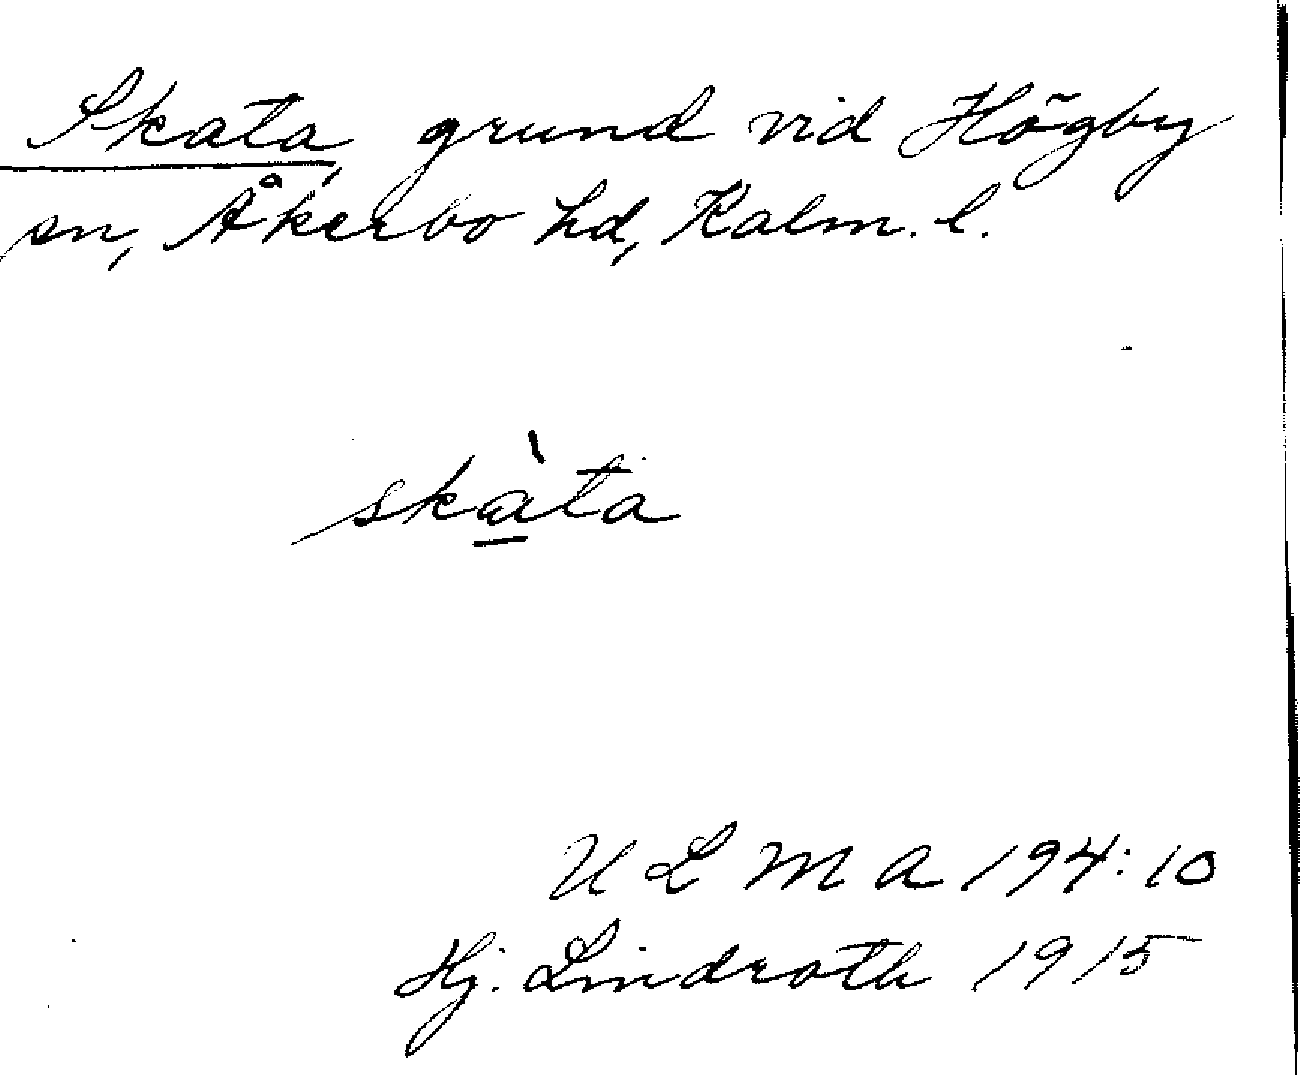 Skata, grund vid Högby
sn, Åkerbo hd, Kalm. l.
skàta
U L M A 194:10
Hj. Lindroth 1915